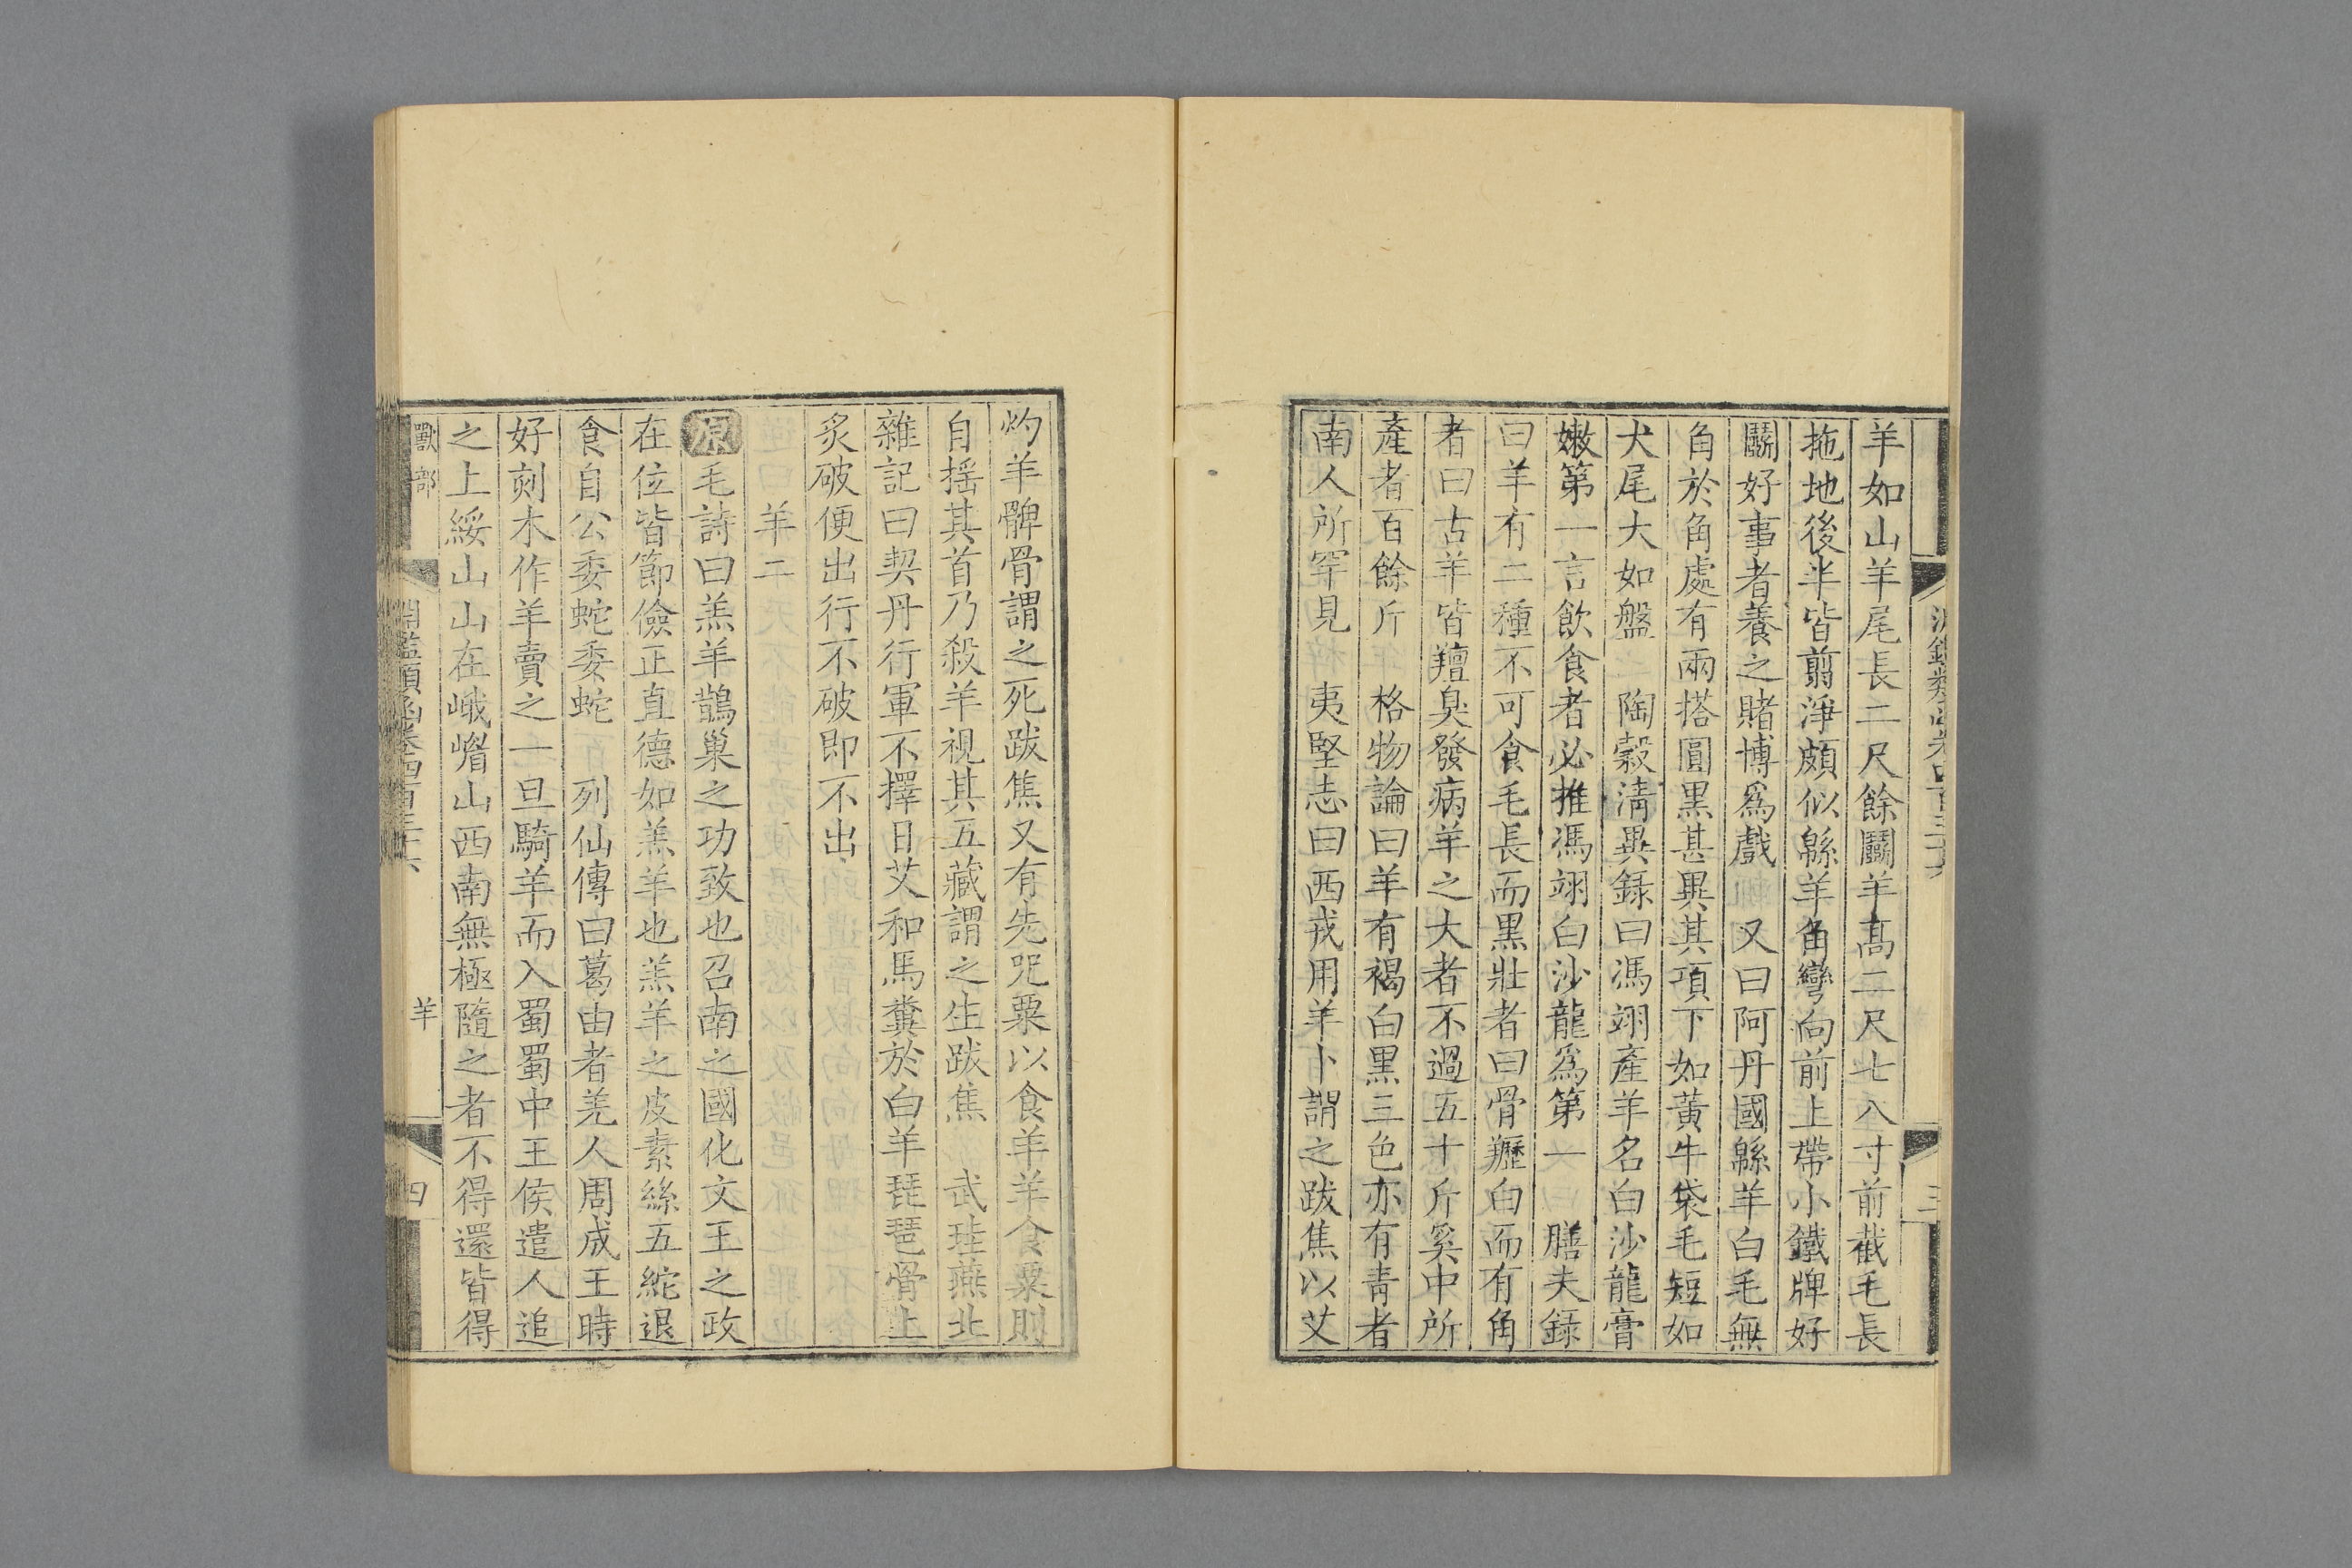 羊如山羊尾長二尺餘鬭羊髙二尺七八寸前截毛長
拖地後半皆翦淨頗似緜羊角彎向前上帶小鐵牌好
鬭好事者養之賭博爲戲 又曰阿丹國緜羊白毛無
角於角處有兩搭圓黑甚異其項下如黃牛袋毛短如
犬尾大如盤 陶穀清異錄曰馮翊產羊名白沙龍膏
嫩第一言飲食者必推馮翊白沙龍爲第一 膳夫錄
曰羊有二種不可食毛長而黑壯者曰骨䍽白而有角
者曰古羊皆羶臭發病羊之大者不過五十斤奚中所
產者百餘斤 格物論曰羊有褐白黑三色亦有青者
南人所罕見 夷堅志曰西戎用羊卜謂之跋焦以艾
三
灼羊髀骨謂之死跋焦又有先呪粟以食羊羊食粟則
自搖其首乃殺羊視其五藏謂之生跋焦 武珪燕北
雜記曰契丹行軍不擇日艾和馬糞於白羊琵琶骨上
炙破便出行不破即不出
羊二
原 毛詩曰羔羊鵲巢之功致也召南之國化文王之政
在位皆節儉正直德如羔羊也羔羊之皮素絲五紽退
食自公委蛇委蛇 列仙傳曰葛由者羌人周成王時
好刻木作羊賣之一旦騎羊而入蜀蜀中王侯遣人追
之上綏山山在峨嵋山西南無極隨之者不得還皆得
獸部
淵鑑類函卷四百三十六
羊
四